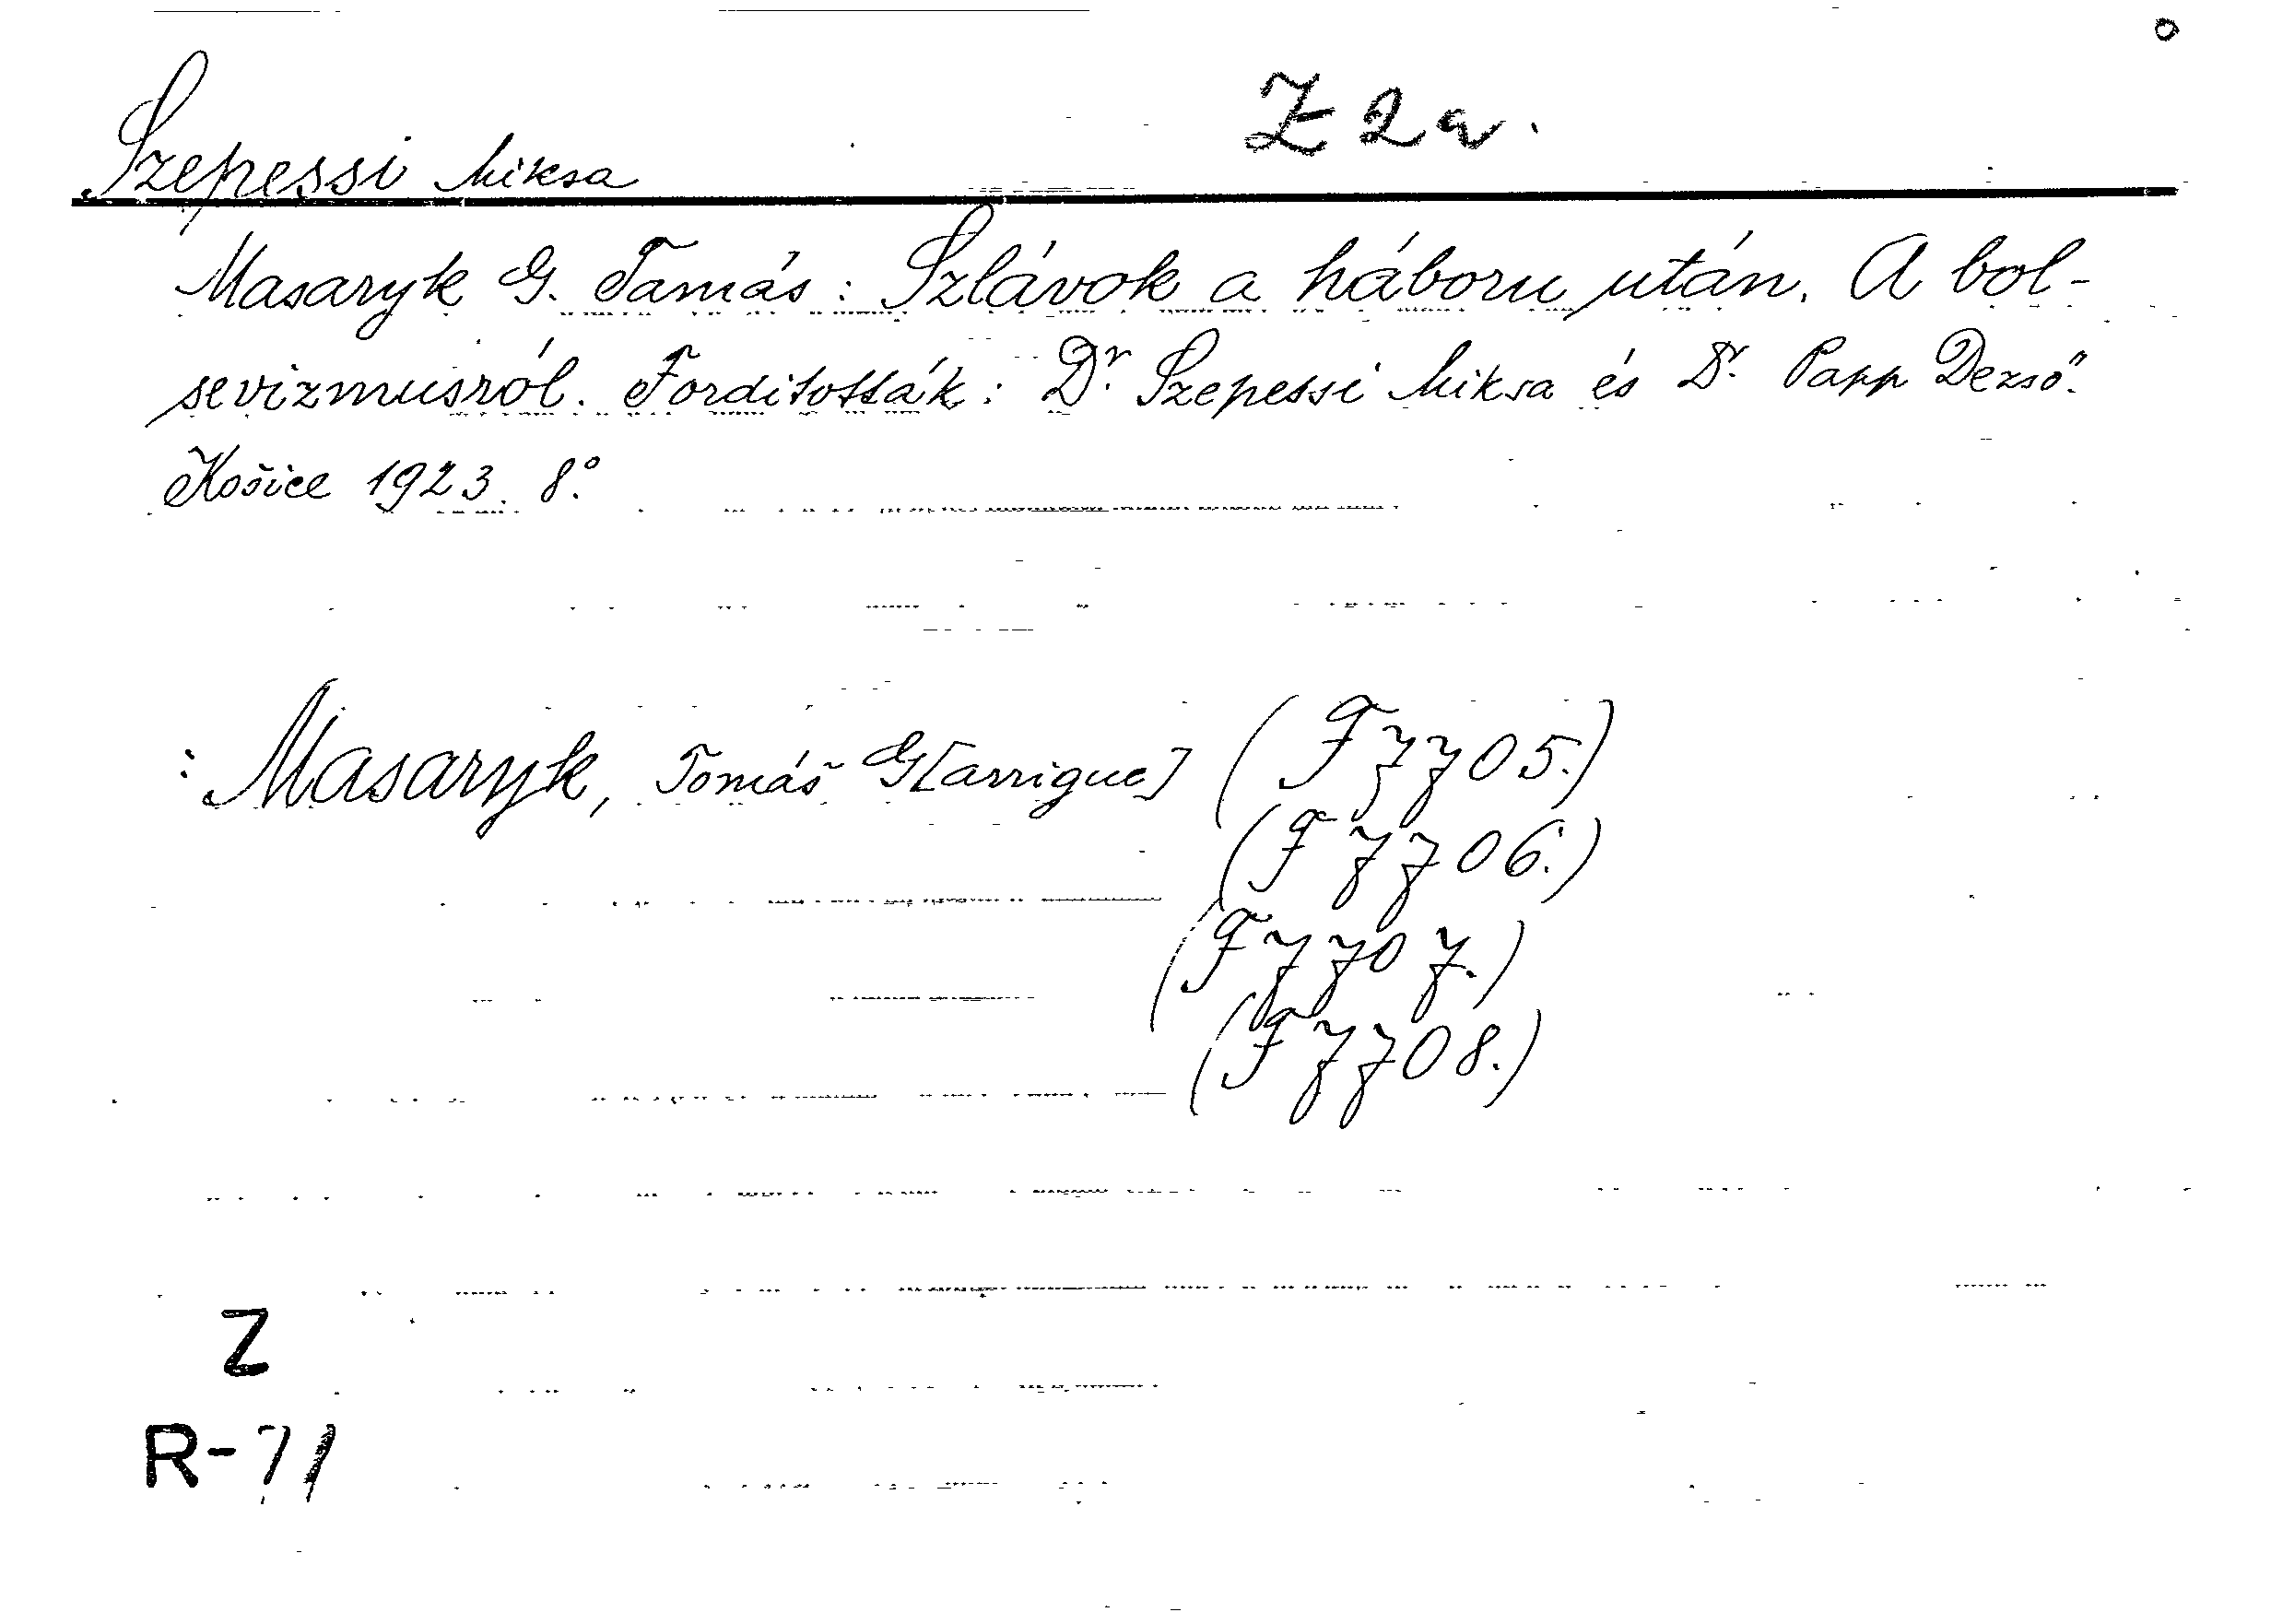 Z 2a.
Szepessi Miksa
Masaryk G. Tamás: Szlávok a háboru után. A bol-
sevizmusról. Forditották: Dr. Szepessi Miksa és Dr. Papp Dezső.
Košice 1923. 8.°
: Masaryk, Tomáš G[arrigue] (F 7705.)
(F 7706.)
(F 7707.)
(F 7708.)
Z
R-71